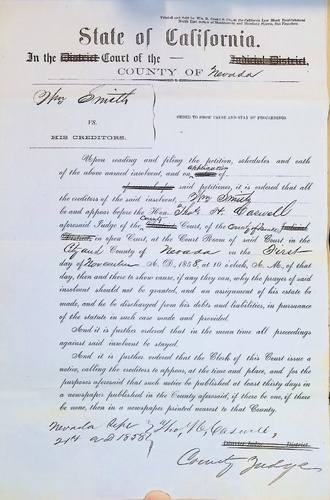 Printed and sold by Wm. B. Cooke & Co., at the California Law Blank Establishment
State of California.
In the District Court of the Judicial District,
COUNTY OF Nevada
Wm Smith
VS.
HIS CREDITORS.
ORDER TO SHOW CAUSE AND STAY OF PROCEEDINGS.
Upon reading and filing the petition, schedules and oath
of the above named insolvent, and on application of
said petitioner, it is ordered that all
the creditors of the said insolvent, Wm Smith
be and appear before the Hon. Thos. H. Caswell
aforesaid Judge of the County Court, of the County of Nevada Judicial
District, in open Court, at the Court Room of said Court in the
City and County of Nevada on the First
day of November A. D. 1858, at 10 o'clock, A. M., of that
day, then and there to show cause, if any they can, why the prayer of said
insolvent should not be granted, and an assignment of his estate be
made, and he be discharged from his debts and liabilities, in pursuance
of the statute in such case made and provided.
And it is further ordered that in the mean time all proceedings
against said insolvent be stayed.
And it is further ordered that the Clerk of this Court issue a
notice, calling the creditors to appear, at the time and place, and for the
purposes aforesaid that such notice be published at least thirty days in
a newspaper published in the County aforesaid, if there be one, if there
be none, then in a newspaper printed nearest to that County.
Nevada Sept Thos. H. Caswell,
21st A.D. 1858
District Judge, District.
County Judge